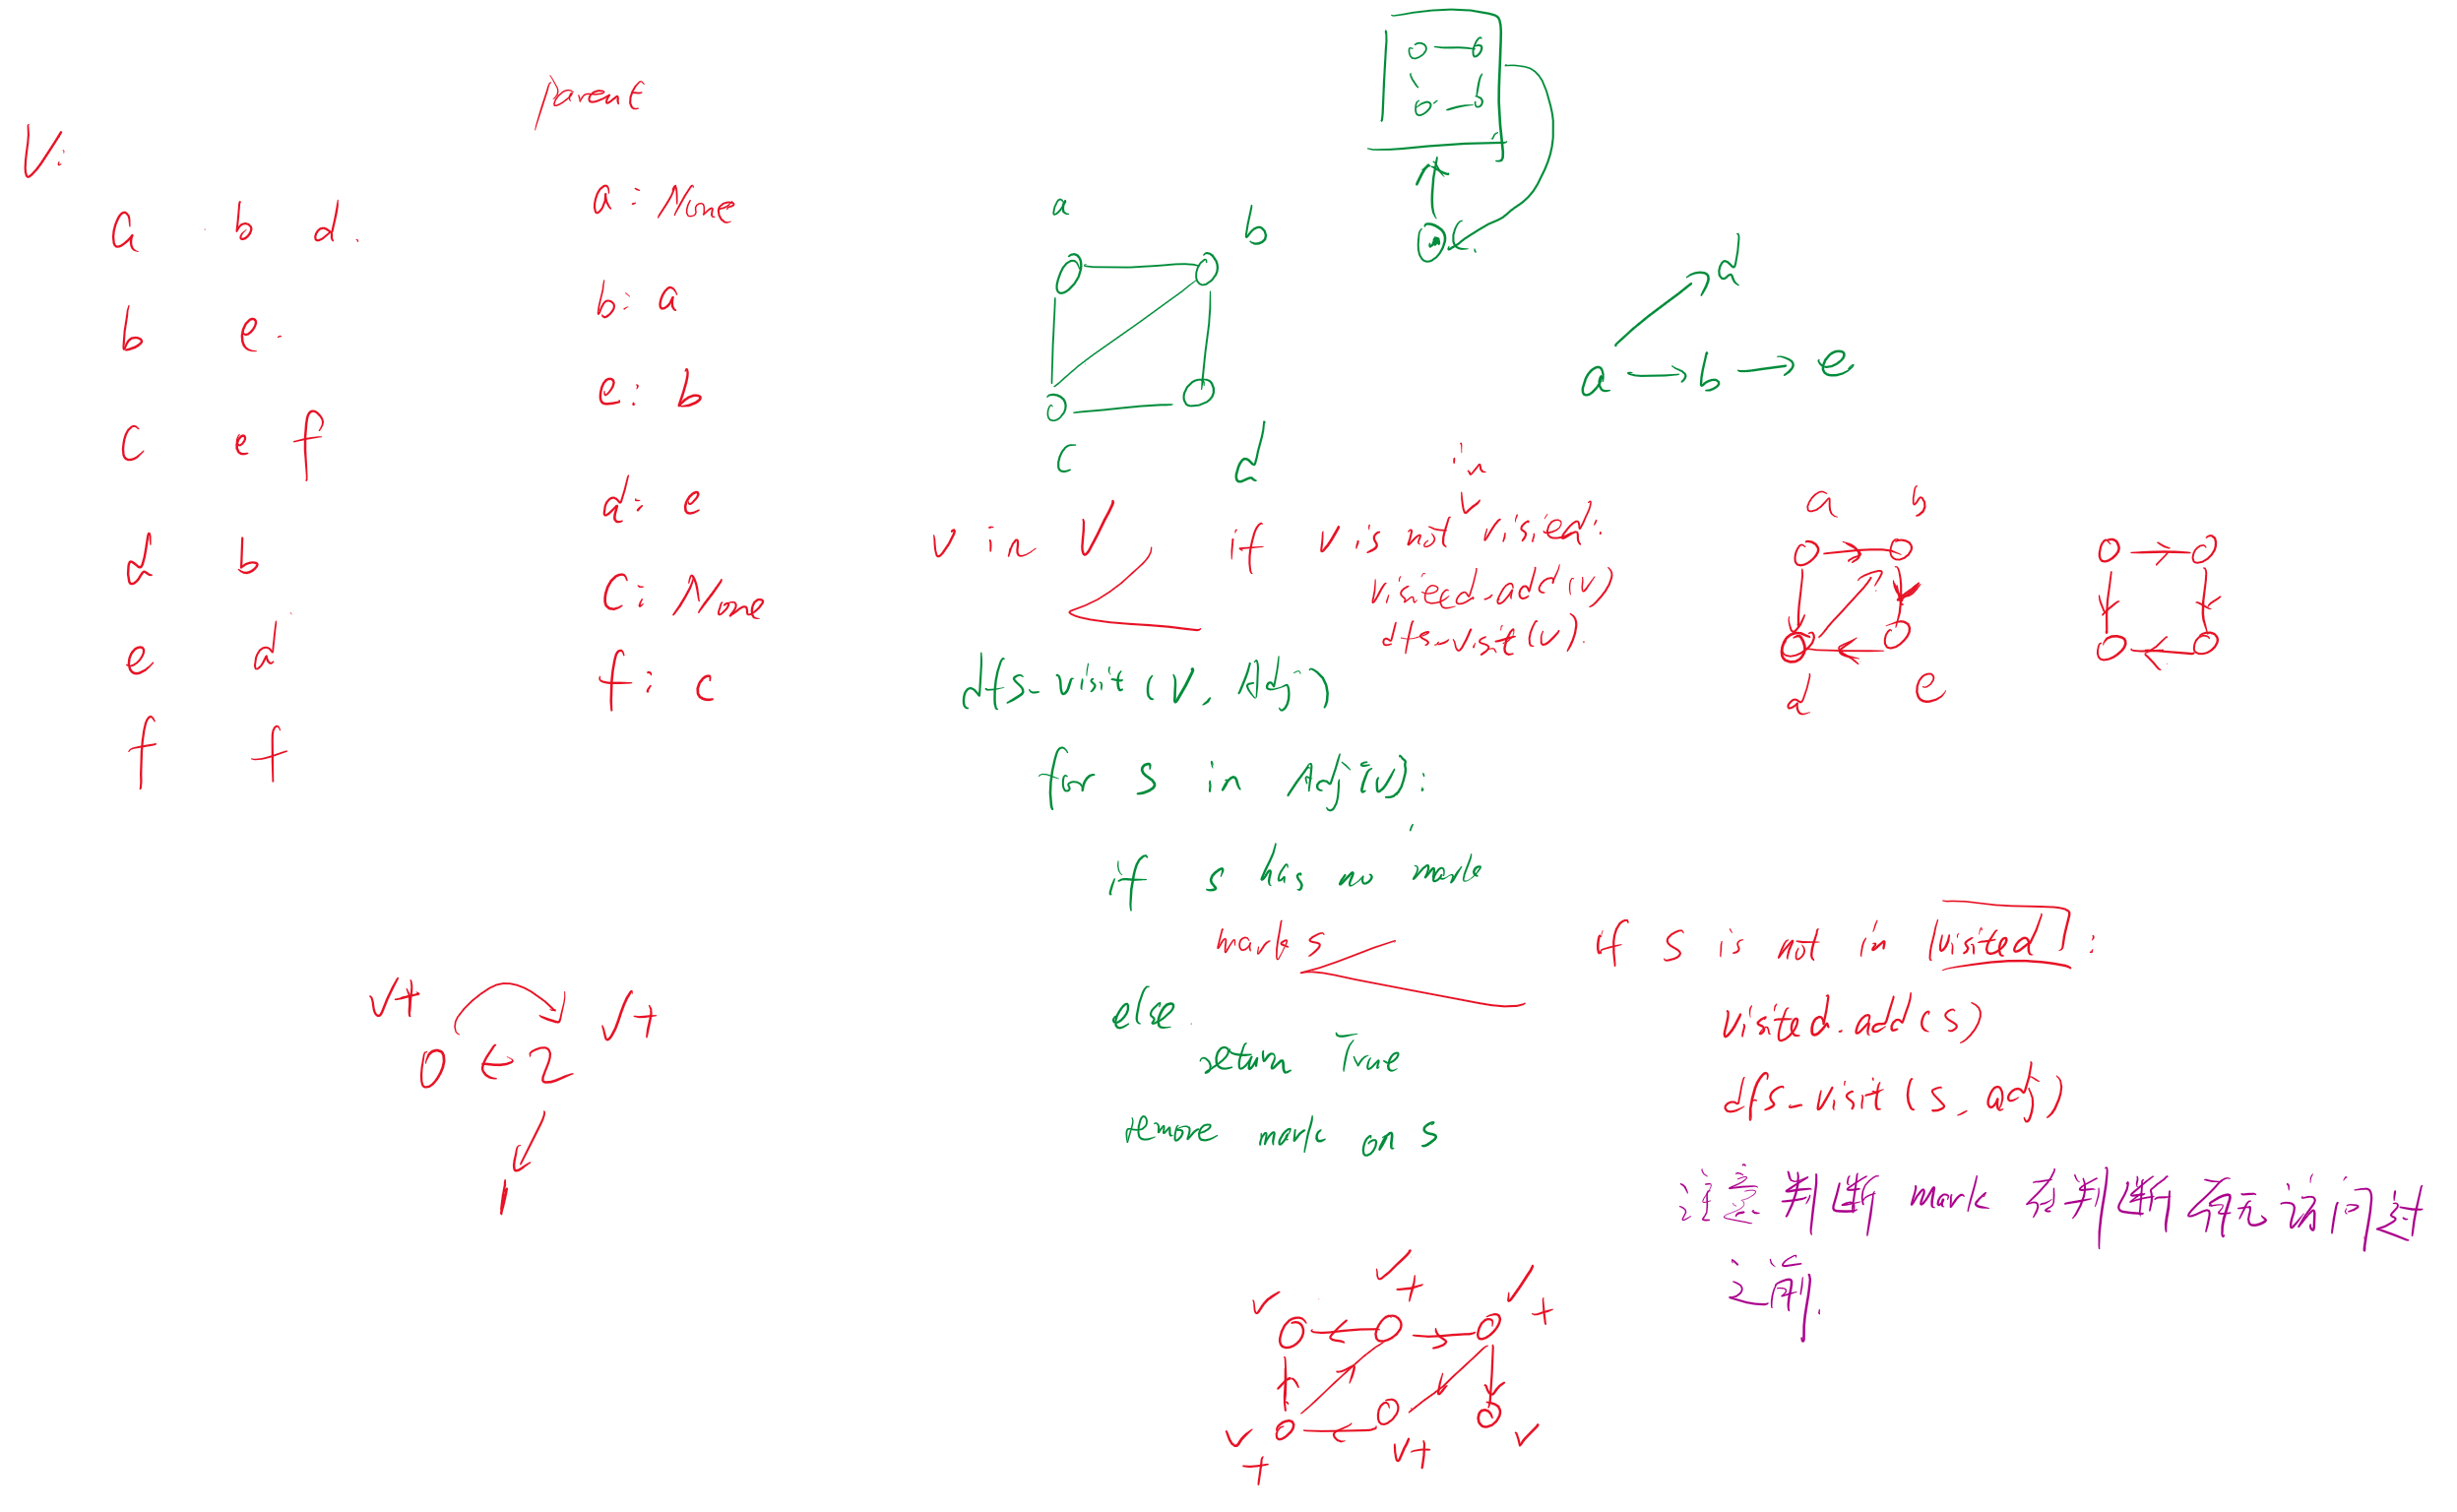 V:
a b d.
b e.
c e f
d b
e d
f f
parent
a: None
b: a
e: b
d: e
c: None
f: c
a
b
c
d
a b e
d
v in V
in
if v is not visited:
visited.add(v)
dfs-visit(v).
dfs-visit(V, Adj)
for s in Adj[v]:
if s has no mark
mark s
else
return True
remove mark on s
if s is not in visited:
visited.add(s)
dfs-visit(s, adj)
注意判断 mark 在判断有无访问过
之前.
a b
d e
0 2
1